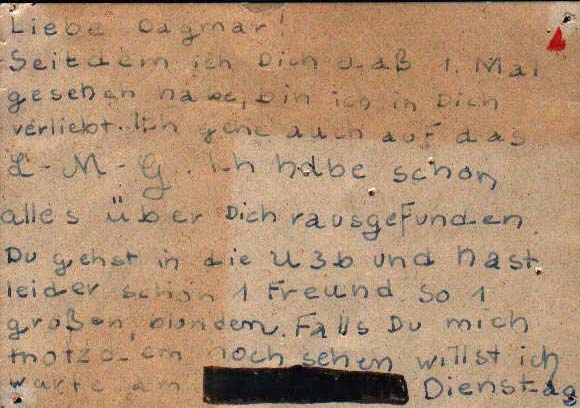 Liebe Dagmar!
Seitdem ich Dich daß 1. Mal
gesehen habe, bin ich in Dich
verliebt. Ich gehe auch auf das
L-M-G. Ich habe schon
alles über Dich rausgefunden.
Du gehst in die U3b und hast
leider schon 1 Freund so 1
großen, blonden. Falls Du mich
trotzdem noch sehen willst ich
warte am Dienstag